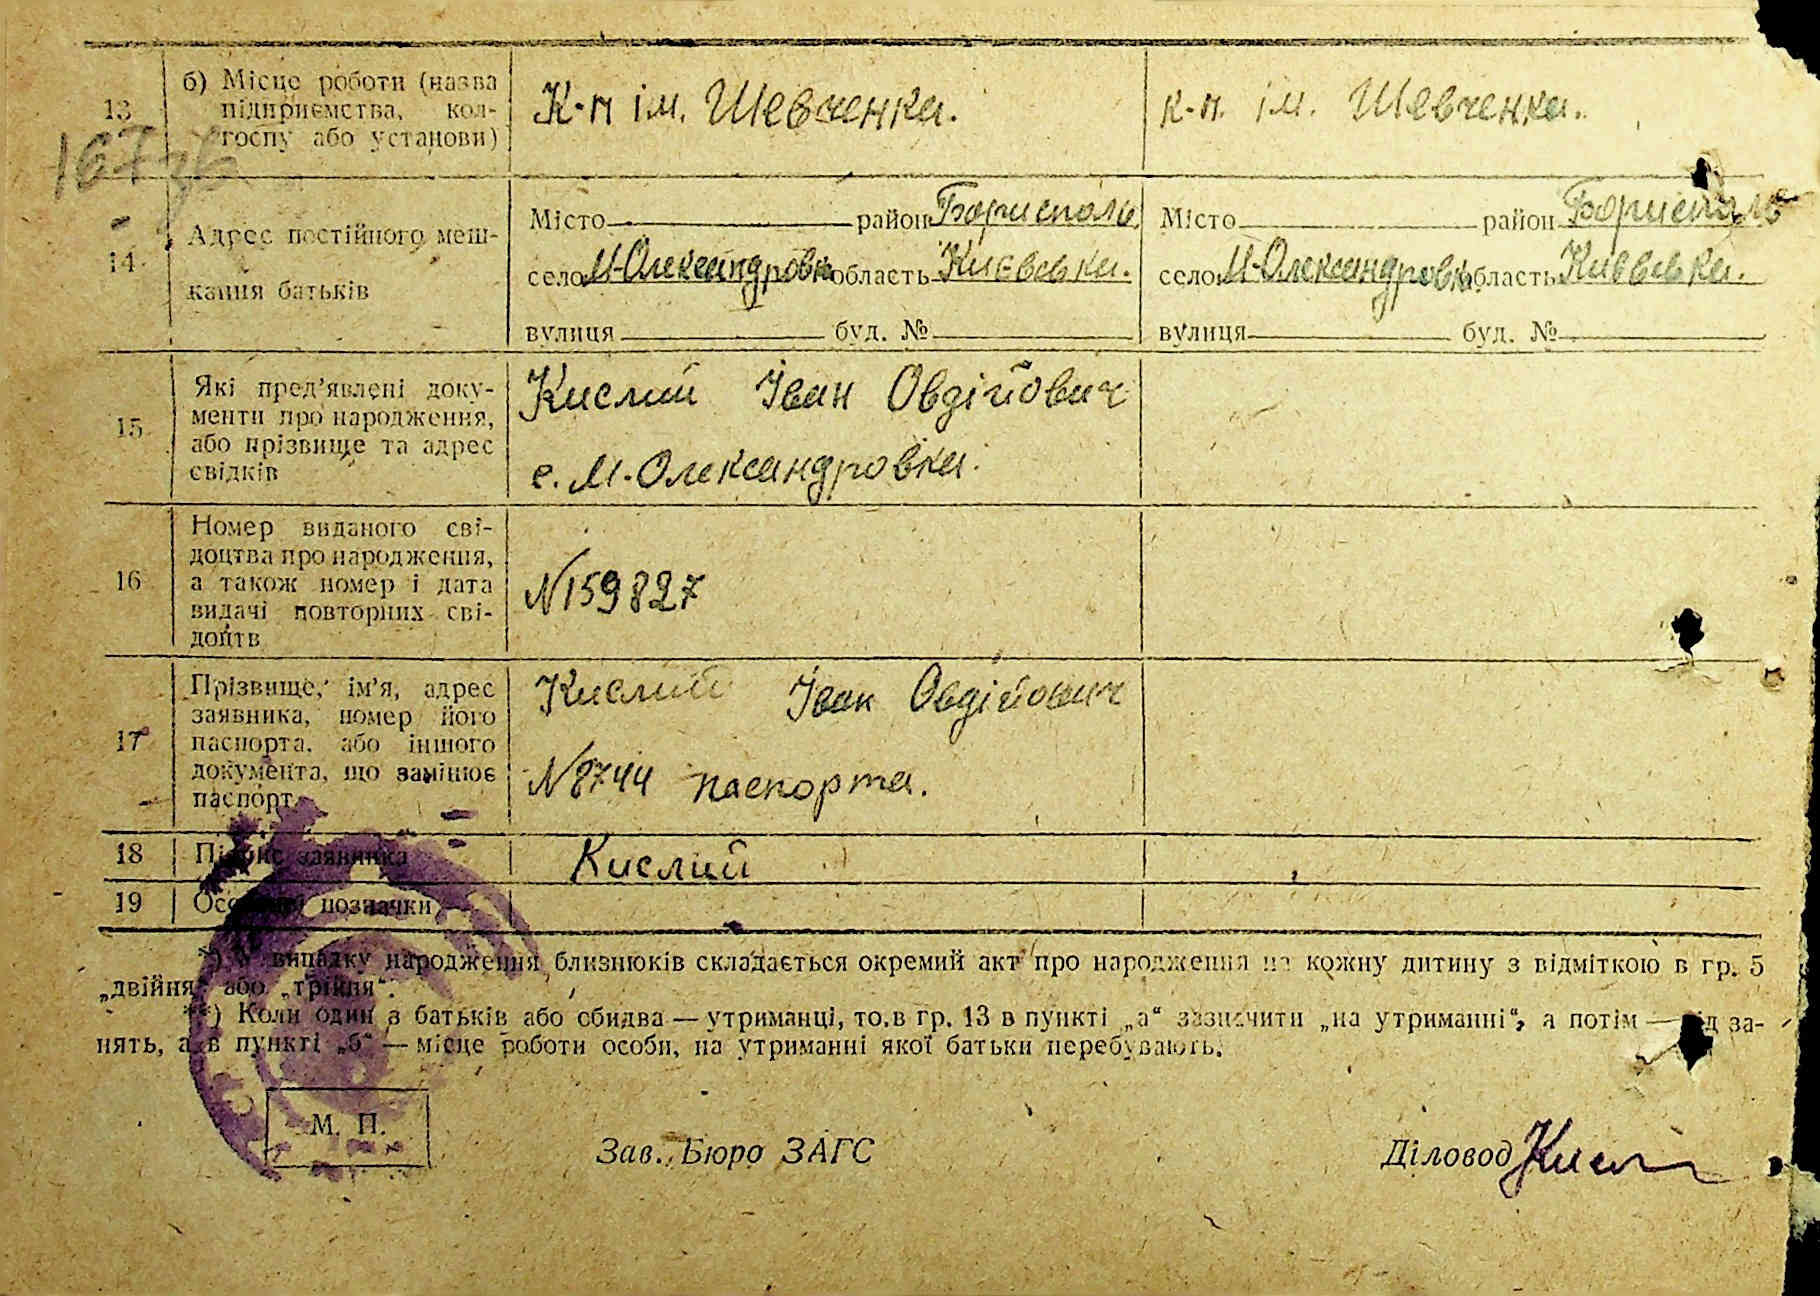 13
б) Місце роботи (назва
підприємства, кол-
госпу або установи)
К-п ім. Шевченка.
к-п. ім. Шевченка.
167зв
14
Адрес постійного меш-
кання батьків
Місто район Бориспол
село М-Олександровка область Києвська.
вулиця буд. №
Місто район Бориспол
село М-Олександровка область Києвська.
вулиця буд. №
15
Які пред'явлені доку-
менти про народження,
або прізвище та адрес
свідків
Кислий Іван Овдійович
с. М-Олександровка.
16
Номер виданого сві-
доцтва про народження,
а також номер і дата
видачі повторних сві-
доцтв
N159827
17
Прізвище, ім'я, адрес
заявника, номер його
паспорта, або іншого
документа, що замінює
паспорт
Кислий Іван Овдійович
N8744 паспорта.
18
Підпис заявника
Кислий
19
Особливі позначки
*) У випадку народження близнюків складається окремий акт про народження на кожну дитину з відміткою в гр. 5
„двійня" або „трійня".
**) Коли один з батьків або обидва — утриманці, то в гр. 13 в пункті „а" зазначити „на утриманні", а потім — рід за-
нять, а в пункті „б" — місце роботи особи, на утриманні якої батьки перебувають.
М. П.
Зав. Бюро ЗАГС
Діловод